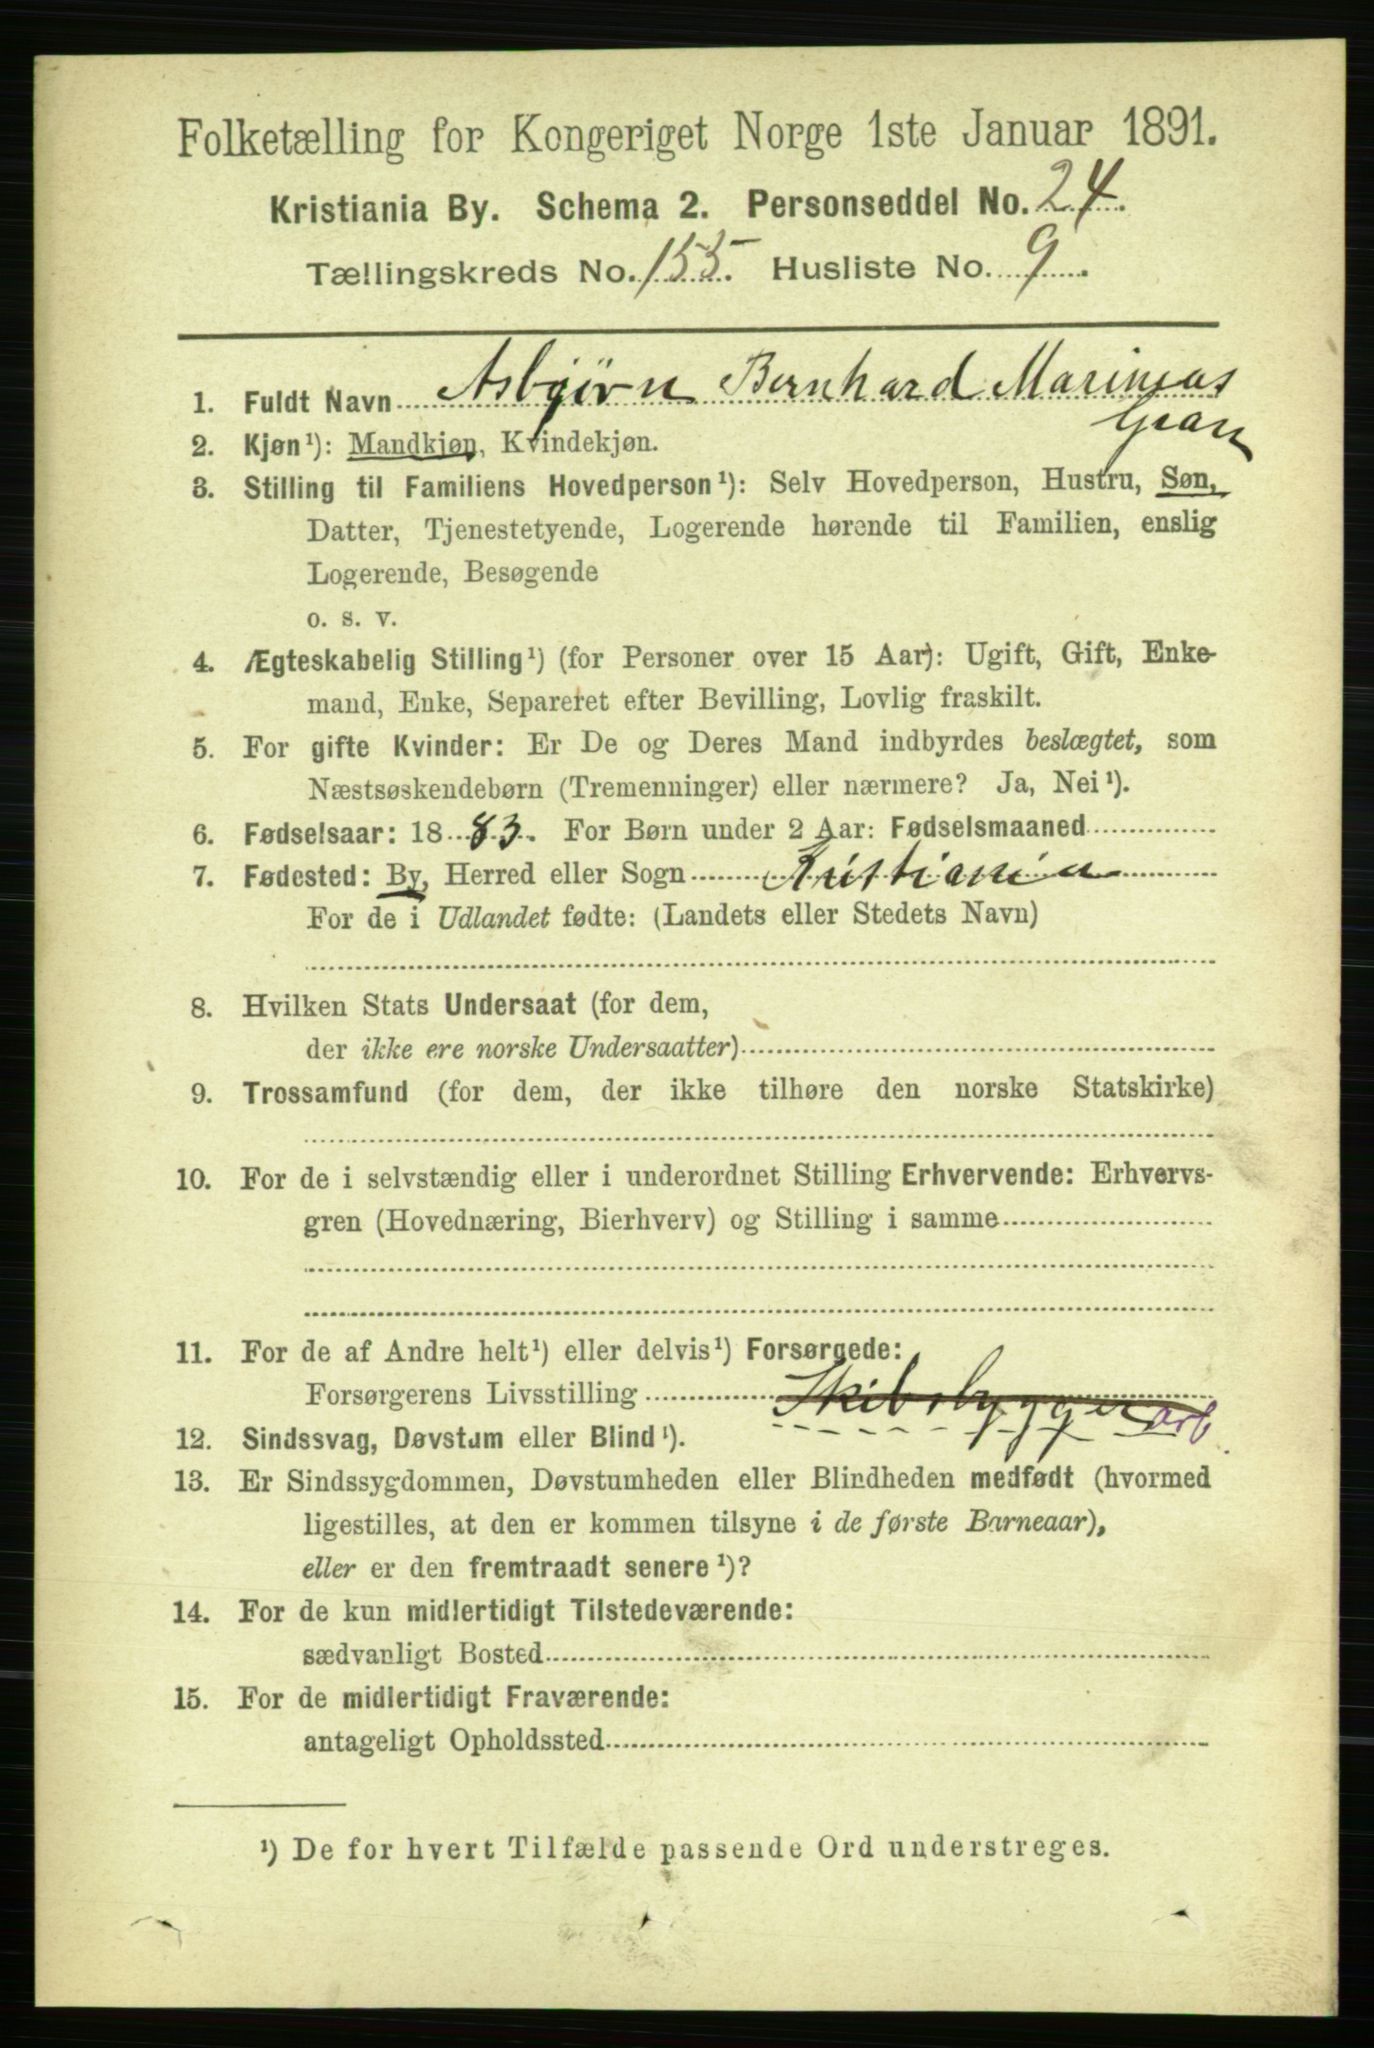 Folketælling for Kongeriget Norge 1ste Januar 1891.
Kristiania By. Schema 2. Personseddel No. 24.
Tællingskreds No. 155. Husliste No. 9.
1. Fuldt Navn Asbjörn Bernhard Marinius
Gran
2. Kjøn¹): Mandkjøn, Kvindekjøn.
3. Stilling til Familiens Hovedperson¹): Selv Hovedperson, Hustru, Søn,
Datter, Tjenestetyende, Logerende hørende til Familien, enslig
Logerende, Besøgende
o. s. v.
4. Ægteskabelig Stilling¹) (for Personer over 15 Aar): Ugift, Gift, Enke-
mand, Enke, Separeret efter Bevilling, Lovlig fraskilt.
5. For gifte Kvinder: Er De og Deres Mand indbyrdes beslægtet, som
Næstsøskendebørn (Tremenninger) eller nærmere? Ja, Nei¹).
6. Fødselsaar: 1883. For Børn under 2 Aar: Fødselsmaaned
7. Fødested: By, Herred eller Sogn Kristiania
For de i Udlandet fødte: (Landets eller Stedets Navn)
8. Hvilken Stats Undersaat (for dem,
der ikke ere norske Undersaatter)
9. Trossamfund (for dem, der ikke tilhøre den norske Statskirke)
10. For de i selvstændig eller i underordnet Stilling Erhvervende: Erhvervs-
gren (Hovednæring, Bierhverv) og Stilling i samme
11. For de af Andre helt¹) eller delvis¹) Forsørgede:
Forsørgerens Livsstilling Skibsbyggerarb.
12. Sindssvag, Døvstum eller Blind¹).
13. Er Sindssygdommen, Døvstumheden eller Blindheden medfødt (hvormed
ligestilles, at den er kommen tilsyne i de første Barneaar),
eller er den fremtraadt senere¹)?
14. For de kun midlertidigt Tilstedeværende:
sædvanligt Bosted
15. For de midlertidigt Fraværende:
antageligt Opholdssted
¹) De for hvert Tilfælde passende Ord understreges.